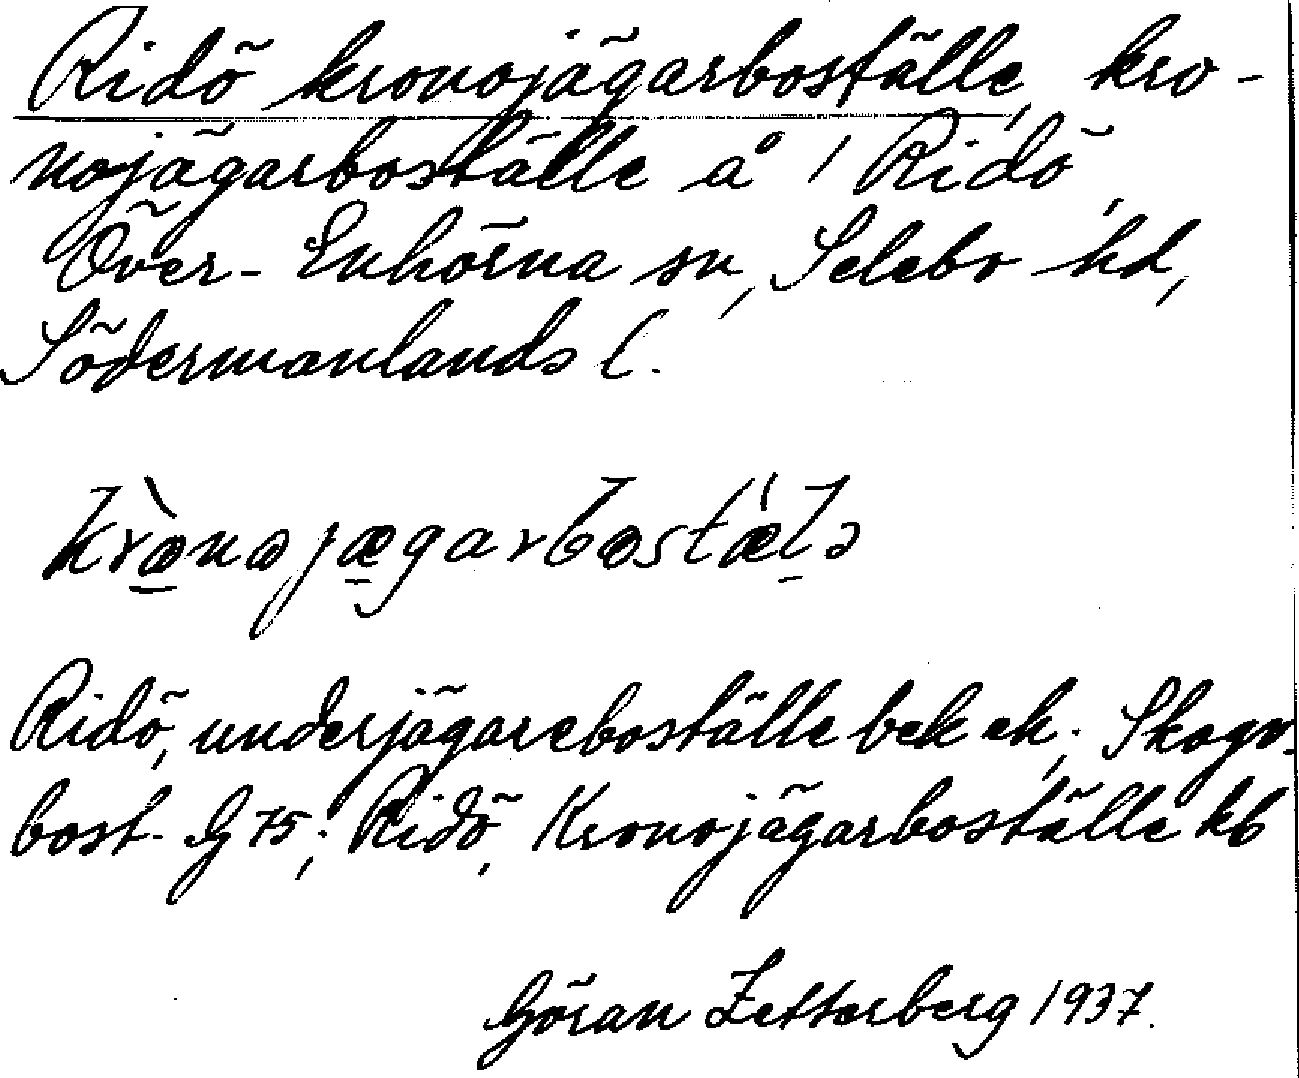 Ridö kronojägarboställe, kro-
nojägarboställe å 1 Ridö,
Över-Enhörna sn, Selebo hd,
Södermanlands l.
Ridö, underjägareboställe bek ek; Skogv.
bost. G 75; Ridö, Kronojägarboställe kb
Göran Zetterberg 1937.